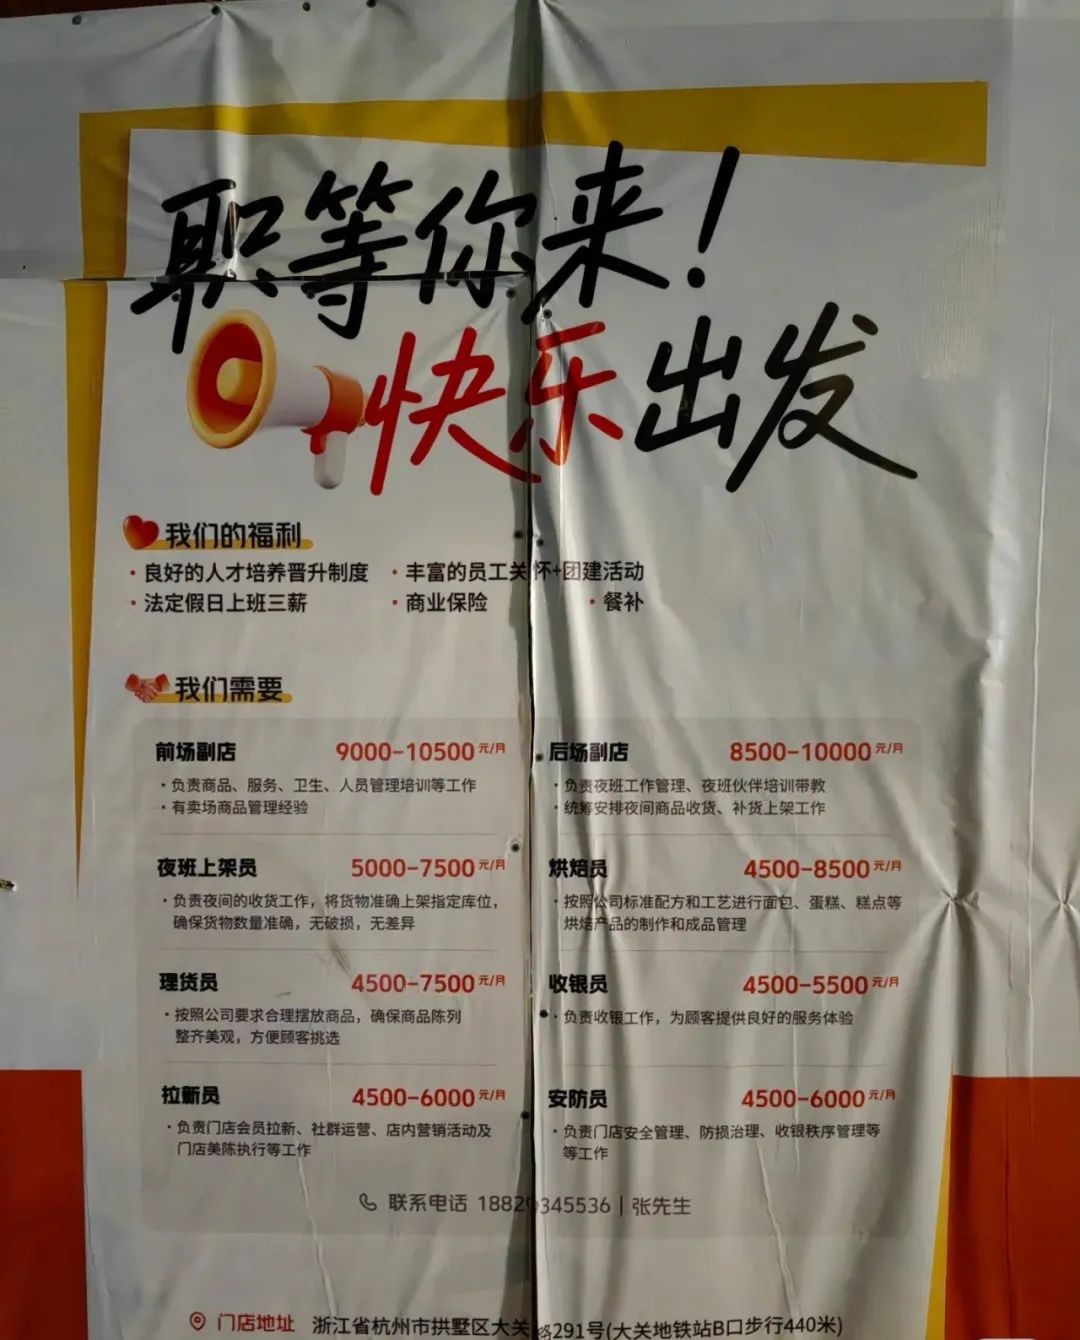 职等你来!
快乐出发
我们的福利
·良好的人才培养晋升制度 ·丰富的员工关怀+团建活动
·法定假日上班三薪 ·商业保险 ·餐补
我们需要
前场副店 9000-10500元/月
·负责商品、服务、卫生、人员管理培训等工作
·有卖场商品管理经验
后场副店 8500-10000元/月
·负责夜班工作管理、夜班伙伴培训带教
·统筹安排夜间商品收货、补货上架工作
夜班上架员 5000-7500元/月
·负责夜间的收货工作，将货物准确上架指定库位，
确保货物数量准确，无破损，无差异
烘焙员 4500-8500元/月
·按照公司标准配方和工艺进行面包、蛋糕、糕点等
烘焙产品的制作和成品管理
理货员 4500-7500元/月
·按照公司要求合理摆放商品，确保商品陈列
整齐美观，方便顾客挑选
收银员 4500-5500元/月
·负责收银工作，为顾客提供良好的服务体验
拉新员 4500-6000元/月
·负责门店会员拉新、社群运营、店内营销活动及
门店美陈执行等工作
安防员 4500-6000元/月
·负责门店安全管理、防损治理、收银秩序管理等
等工作
联系电话 18829345536 | 张先生
门店地址 浙江省杭州市拱墅区大关路291号(大关地铁站B口步行440米)